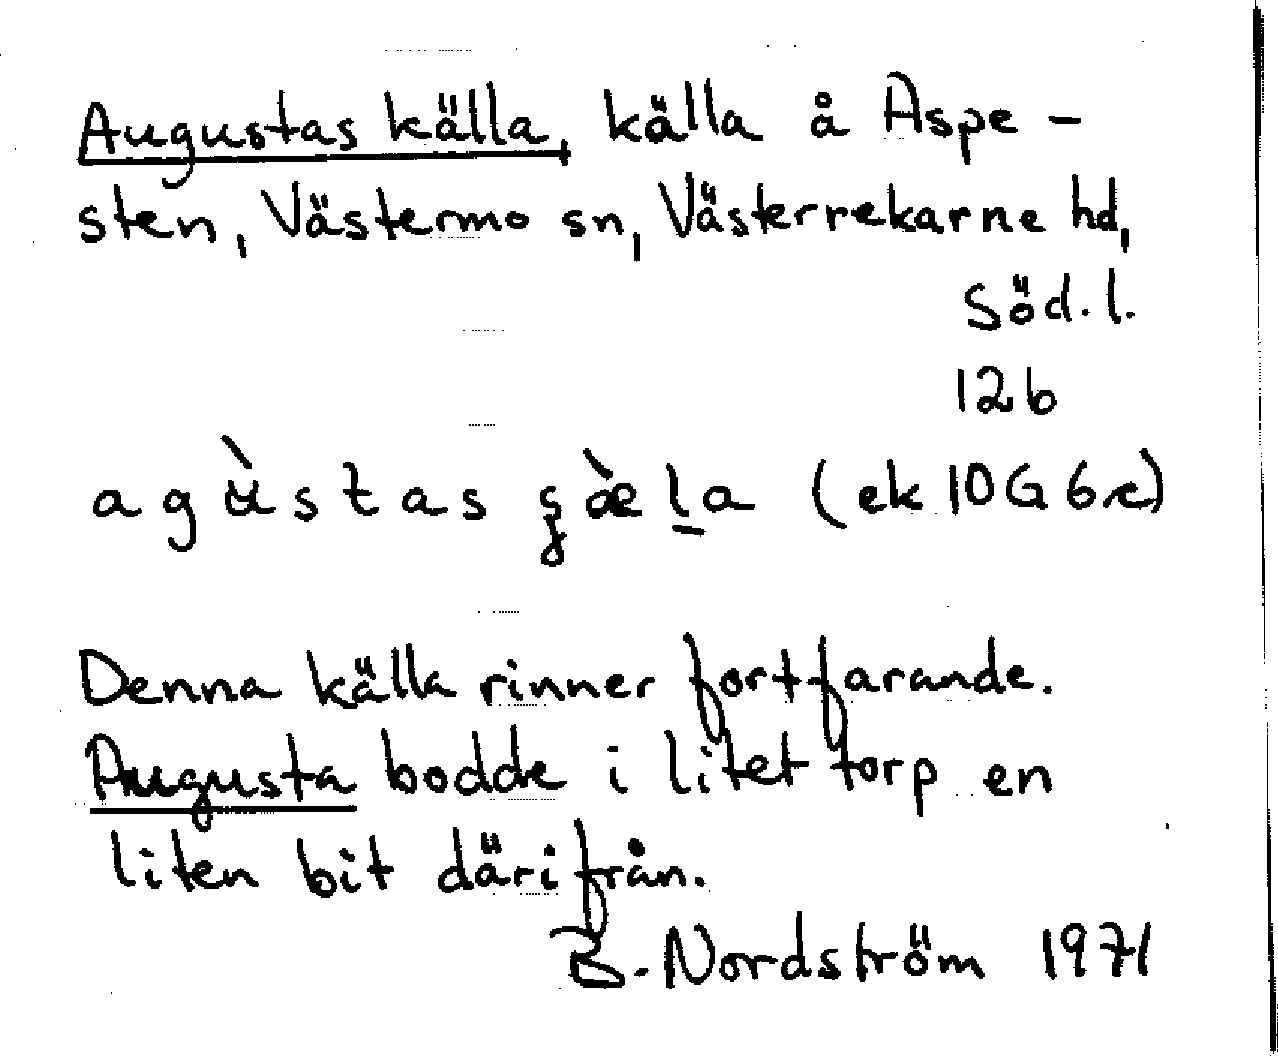 Augustas källa, källa å Aspe-
sten, Västermo sn, Västerrekarne hd,
Söd.l.
12b
agùstas ʂæ̀l̠a (ek 10G6c)
Denna källa rinner fortfarande.
Augusta bodde i litet torp en
liten bit därifrån.
B. Nordström 1971